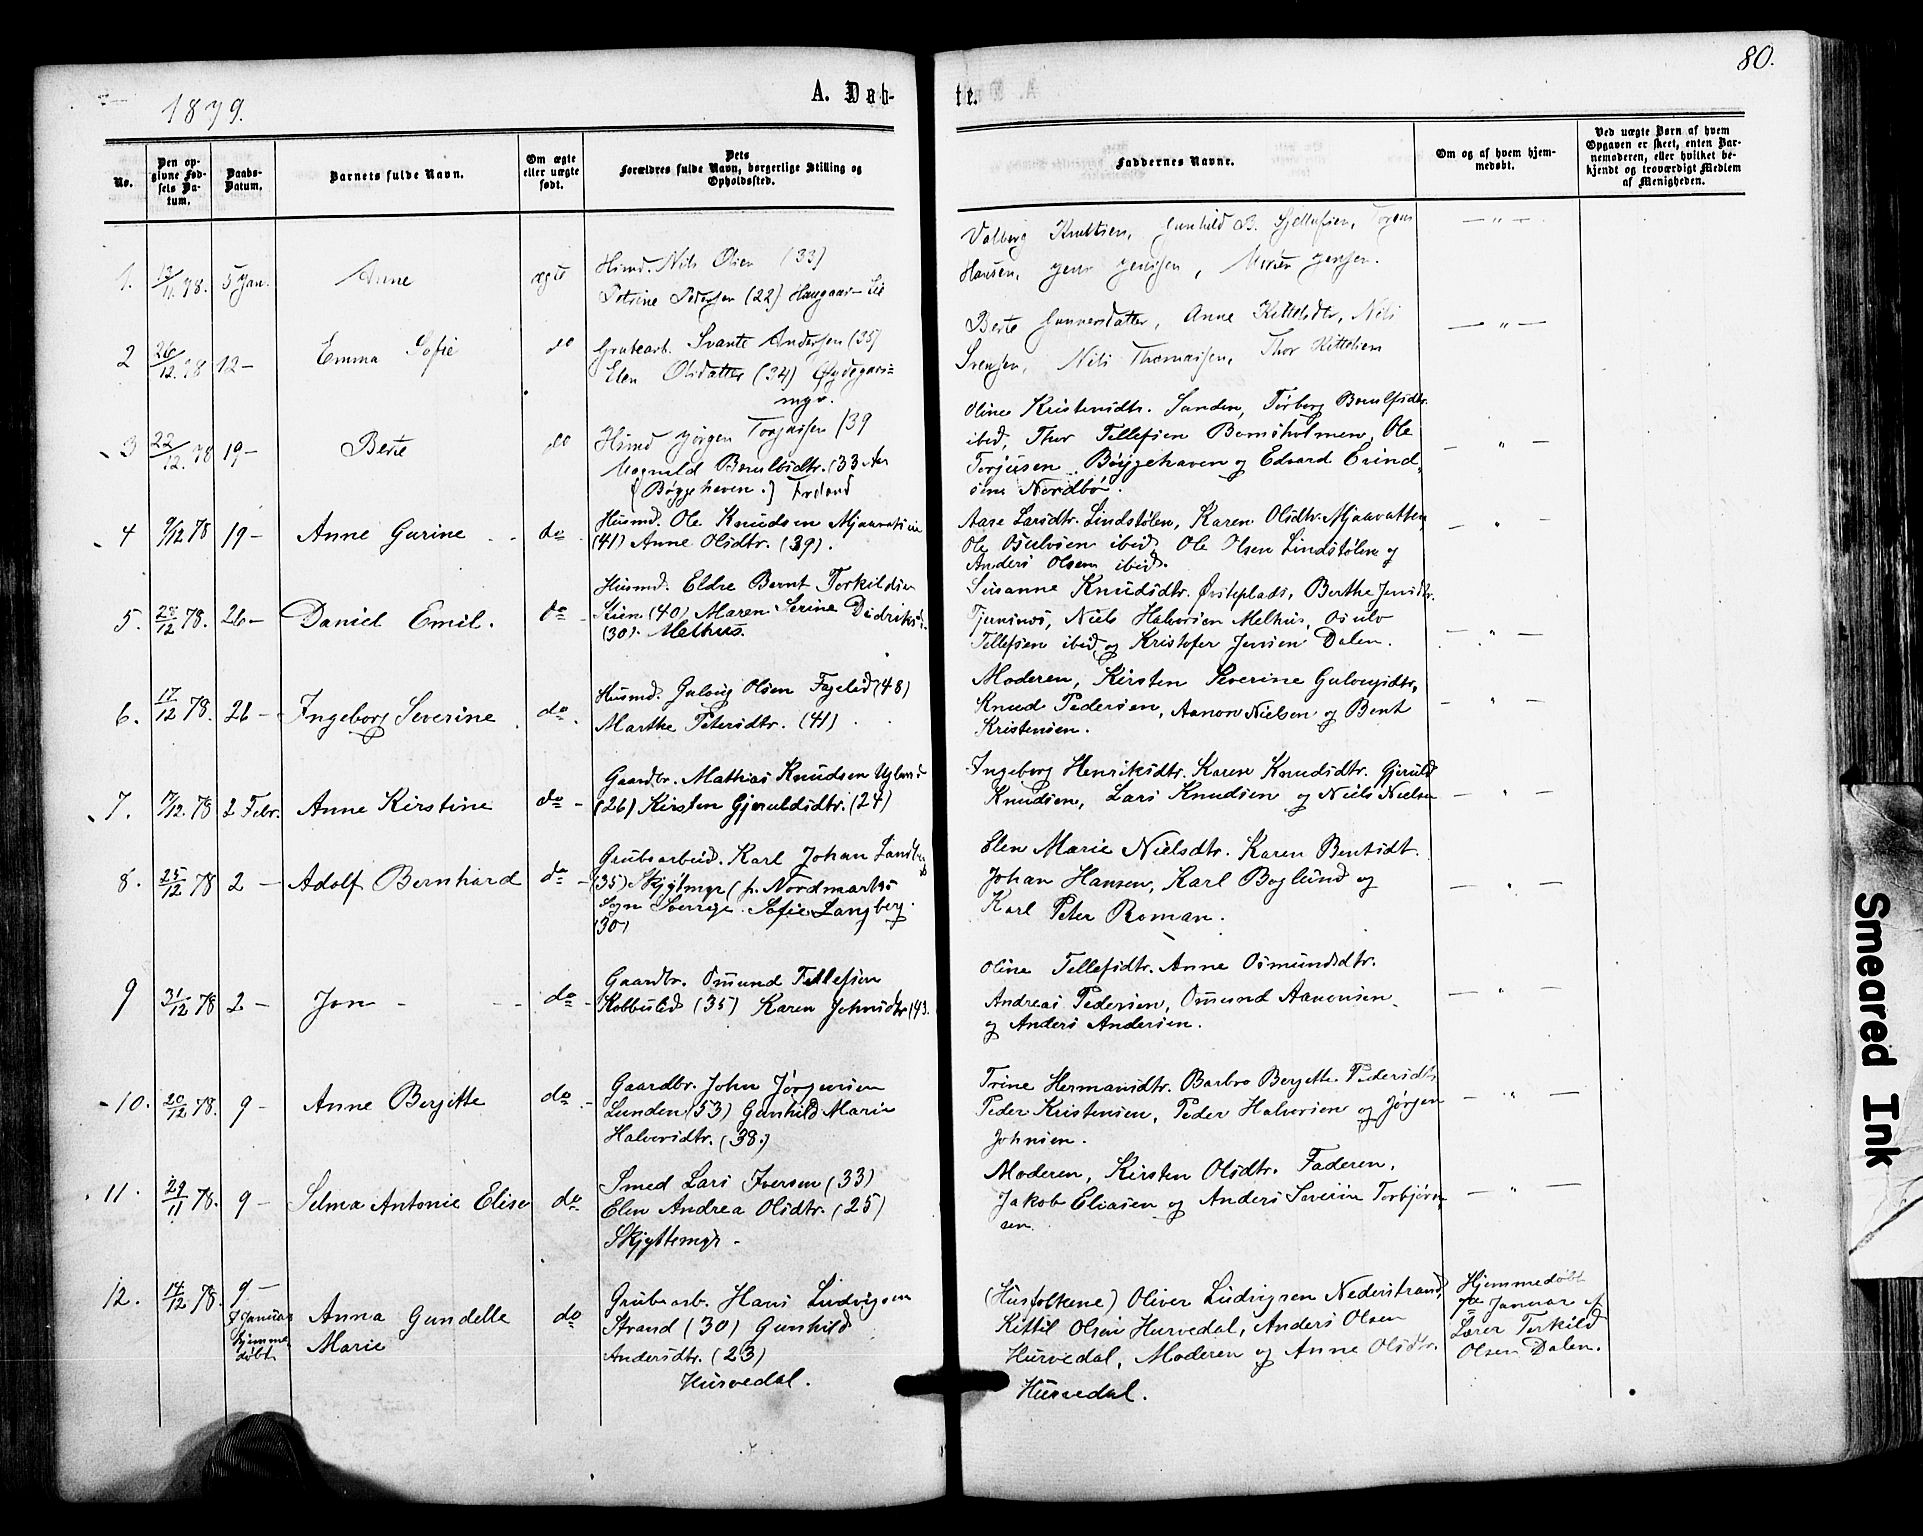 80.
1879.
A. Døb-
te.
No.
Den op-
givne Fød-
sels Da-
tum.
Daabs-
Datum.
Barnets fulde Navn.
Om ægte
eller uægte
født.
Dets
Forældres fulde Navn, borgerlige Stilling og
Opholdssted.
Faddernes Navne.
Om og af hvem hjem-
medøbt.
Ved uægte Børn af hvem
Opgaven er skeet, enten Bar-
nemoderen, eller hvilket be-
kjendt og troværdigt Medlem
af Menigheden.
1. 13/11 78. 5 Jan. Anne ægte
Husmd. Nils Olsen (33)
Petrine Pedersen (22)
Valborg Knutsen, Gunhild B.
Hansen, Jens Jensen, Jensen.
— " —
2 26/12 78 12 — Emma Sofie do
Grubearb. Svante Andersen (35)
Elen Olsdatter (34)
myr.
Berte Gunnersdatter, Anne Kittelsdtr, Nils
Svensen, Nils Thomassen, Thor Kittelsen
— " —
3 22/12 78 19 — Berte do
Husmd Jørgen Torjussen (39
(Bøggehaven.)
Oline Kristensdtr. Sanden, Torborg
ibid, Thor Tellefsen Bomsholmen, Ole
Torjusen Bøggehaven og Edvard Evind
sen Nordbø.
— " —
4 9/12 78 19 — Anne Gurine do
Husmd. Ole Knudsen
(41) Anne Olsdtr. (39).
Aase Larsdtr. Lindstølen, Karen Olsdtr. Mjaavatten
Ole Osulvsen ibid. Ole Olsen Lindstølen og
Anders Olsen ibid.
— " —
5. 28/12 78. 26 — Daniel Emil. do
Husmd. Eldre Bernt Torkildsen
(40) Maren Serine Didriksd.
(30). Melhus.
Susanne Knudsdtr. Østeplads, Berthe Jensdtr.
Niels Halvorsen Melhus, Osulv
Tellefsen ibid og Kristofer Jensen Dalen.
— " —
6. 17/12 78. 26 — Ingeborg Severine do
Husmd. Gulvig Olsen Fogelid (48)
Marthe Petersdtr. (41)
Moderen, Kirsten Severine Gulvigsdtr,
Knud Pedersen, Aanon Nielsen og Bent
Kristensen.
— " —
7. 17/12 78 2 Febr. Anne Kirstine do
Gaardbr. Mathias Knudsen Ugland
(26) Kirsten Gjeruldsdtr. (24)
Ingeborg Henriksdtr. Karen Knudsdtr. Gjeruld
Knudsen, Lars Knudsen og Niels Nielsen
— " —
8. 25/12 78 2 — Adolf Bernhard do
Grubearbeid. Karl Johan Landberg
(35) Skjytmyr (fr. Nordmarks
Sogn Sverrige. Sofie Langberg.
(30)
Elen Marie Nielsdtr. Karen Bentsdt.
Johan Hansen, Karl Boglund og
Karl Peter Roman.
— " —
9 31/12 78 2 — Jon do
Gaardbr. Omund Tellefsen
Kobbuslid (35) Karen Johnsdtr (43.
Oline Tellefsdtr. Anne Osmundsdtr.
Andreas Pedersen, Omund Aanonsen
og Anders Andersen.
— " —
10. 20/12 78. 9 — Anne Berjitte do
Gaardbr. John Jørgensen
Lunden (53) Gunhild Marie
Halvorsdtr. (38.)
Trine Hermansdtr. Barbro Berjitte Pedersdtr
Peder Kristensen, Peder Halvorsen og Jørgen
Johnsen.
— " —
11. 29/11 78. 9 — Selma Antonie Elise do
Smed Lars Iversen (33)
Elen Andrea Olsdtr. (25)
Skjyttemyr.
Moderen, Kirsten Olsdtr. Faderen.
Jakob Eliasen og Anders Severin Torbjørn
sen.
— " —
12. 14/12 78. 9 —
7 Januar
hjemme
døbt
Anna Gundelle
Marie
do
Grubearb. Hans Ludvigsen
Strand (30) Gunhild
Andersdtr. (23)
Hurvedal.
(Husfolkene) Oliver Ludvigsen Nederstrand,
Kittil Olsen Hurvedal, Anders Olsen
Hurvedal, Moderen og Anne Olsdtr.
Hurvedal.
Hjemmedøbt
7de Januar af
Lærer Terkild
Olsen Dalen.
Smeared Ink